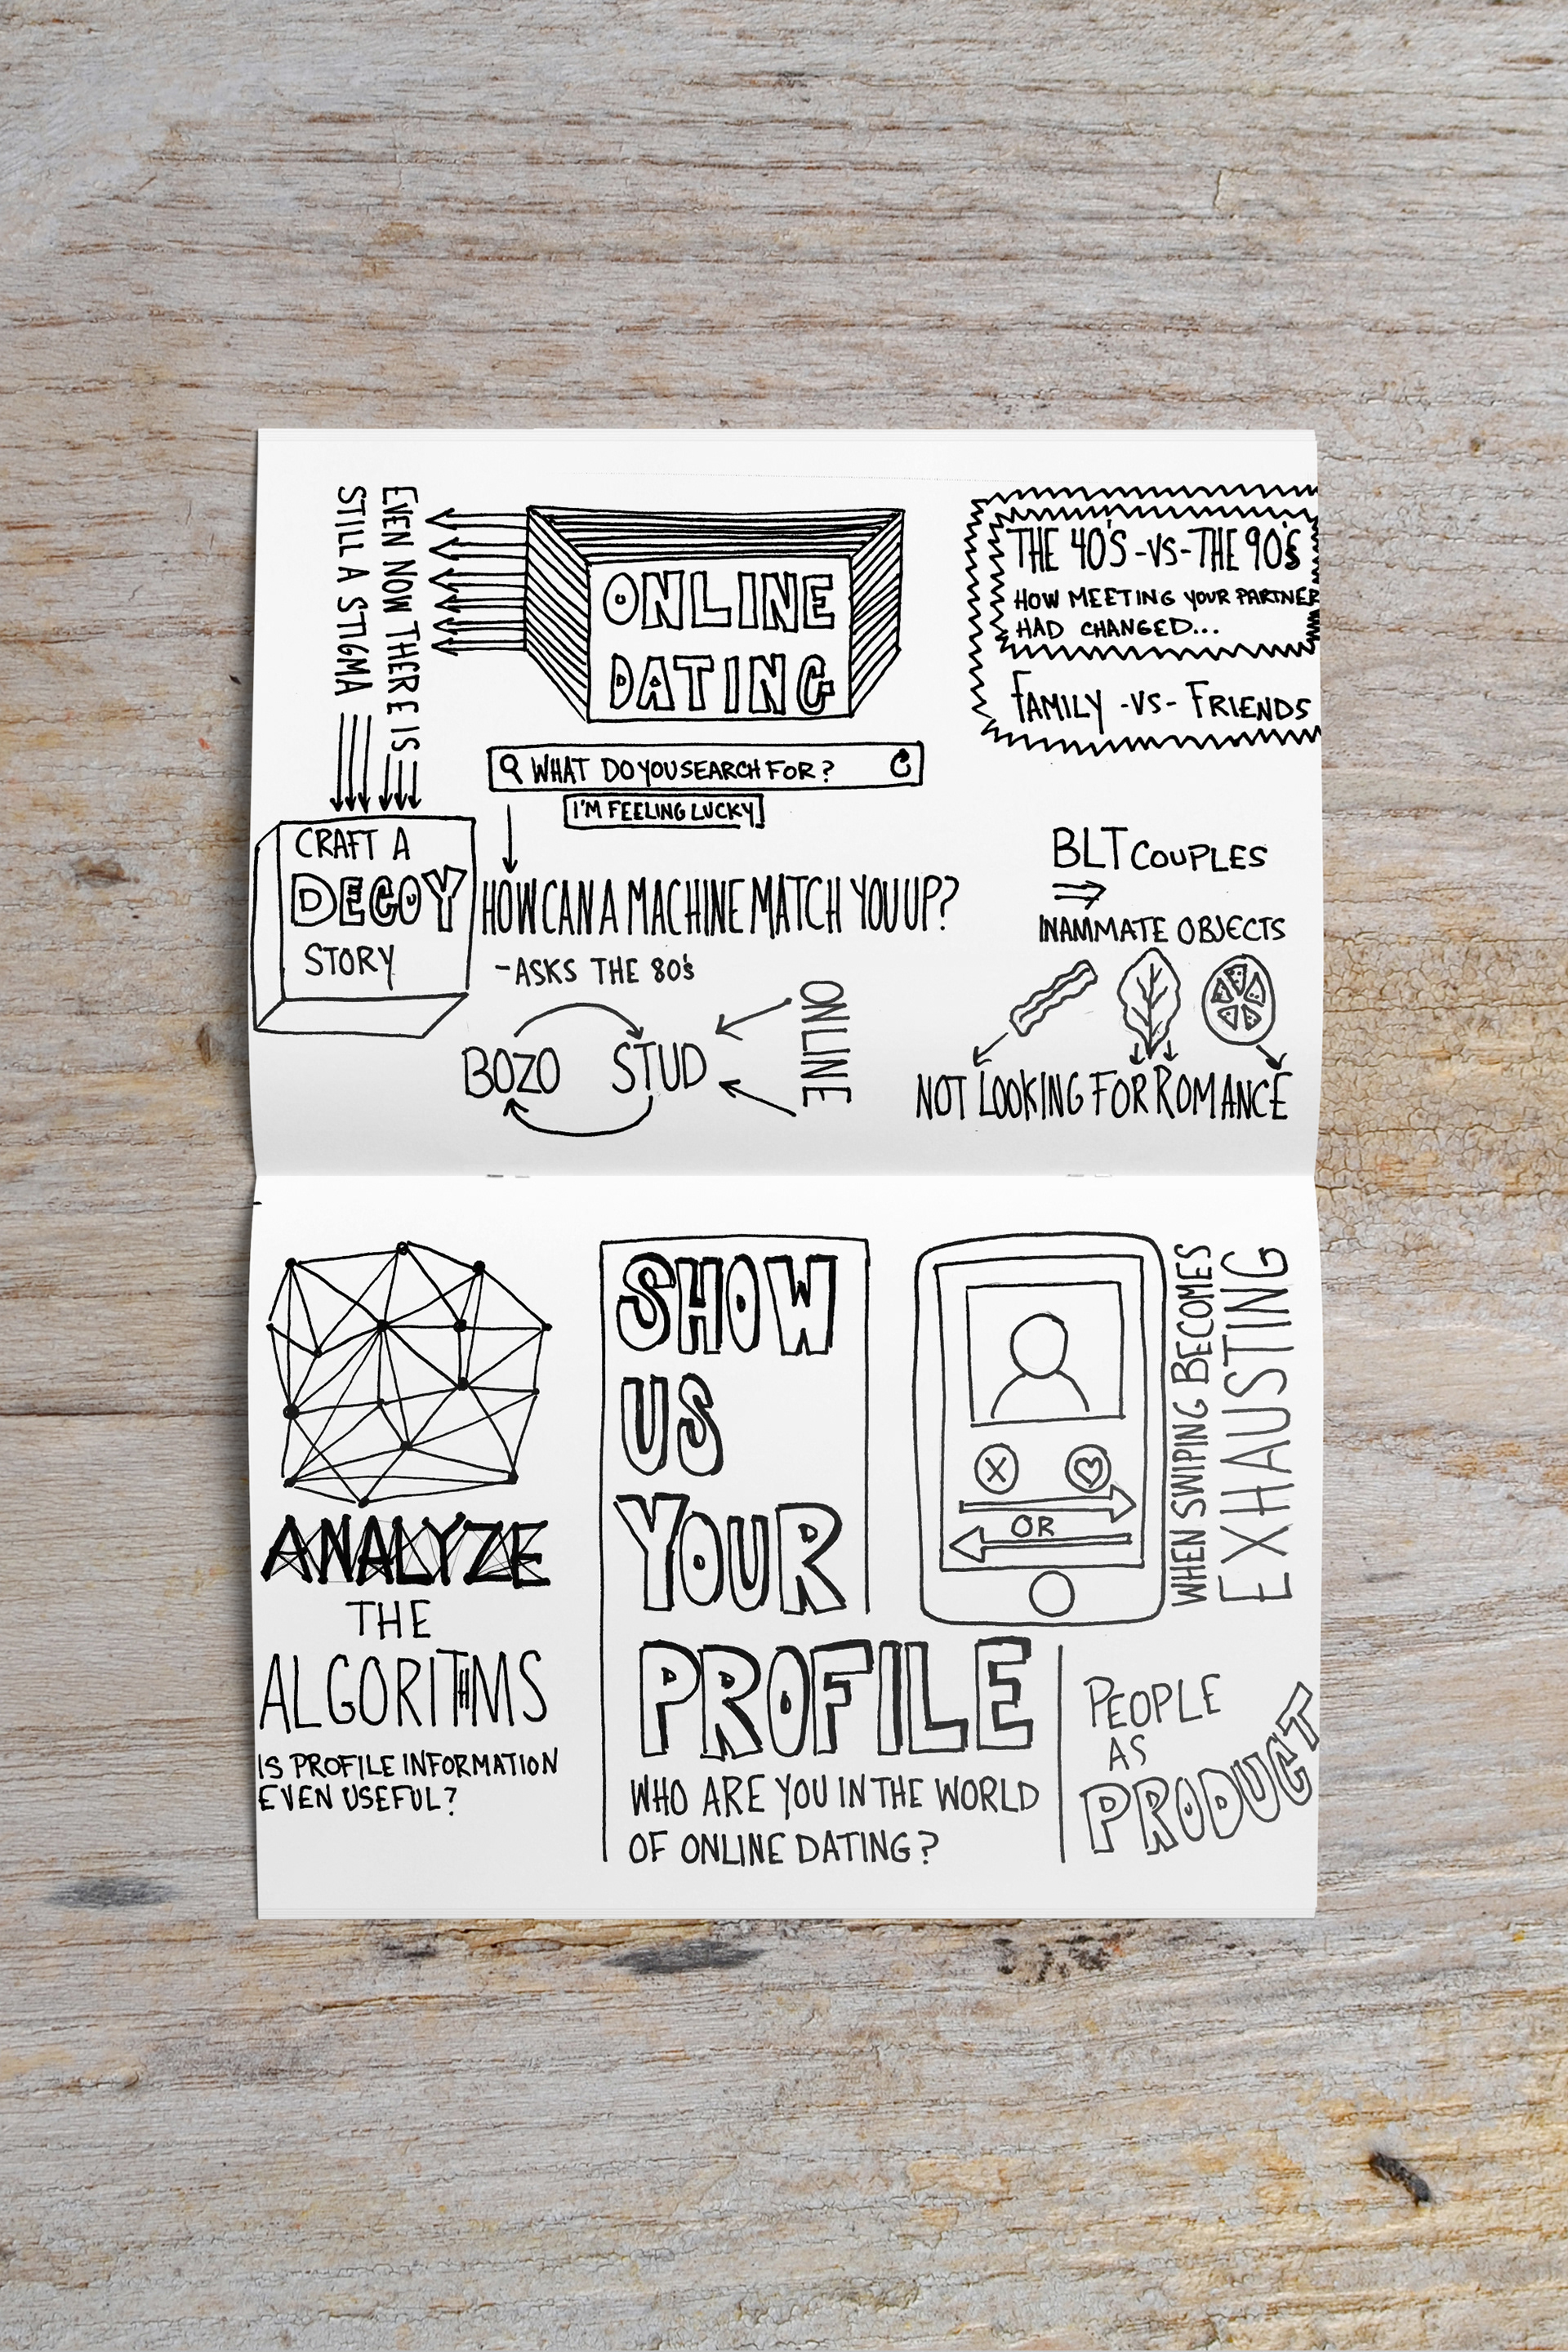 EVEN NOW THERE IS
STILL A STIGMA
ONLINE
DATING
THE 40'S -VS- THE 90'S
HOW MEETING YOUR PARTNER
HAD CHANGED...
FAMILY -VS- FRIENDS
WHAT DO YOU SEARCH FOR?
I'M FEELING LUCKY
CRAFT A
DECOY
STORY
HOW CAN A MACHINE MATCH YOU UP?
-ASKS THE 80's
BOZO STUD
ONLINE
BLT COUPLES
INAMMATE OBJECTS
NOT LOOKING FOR ROMANCE
ANALYZE
THE
ALGORITHMS
IS PROFILE INFORMATION
EVEN USEFUL?
SHOW
US
YOUR
PROFILE
WHO ARE YOU IN THE WORLD
OF ONLINE DATING?
X
OR
WHEN SWIPING BECOMES
EXHAUSTING
PEOPLE
AS
PRODUCT